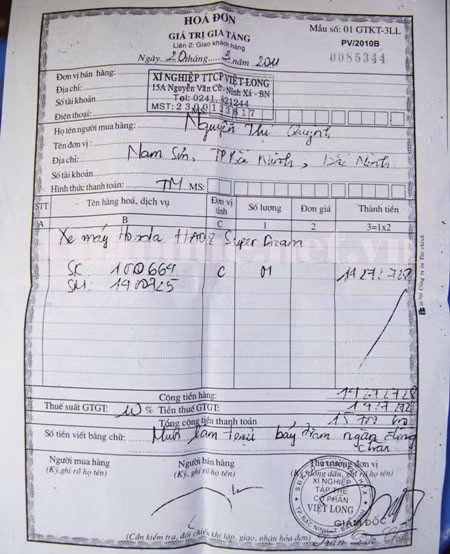 HOÁ ĐƠN
GIÁ TRỊ GIA TĂNG
Liên 2: Giao khách hàng
Mẫu số: 01 GTKT-3LL
PV/2010B
0085344
Ngày 20 tháng 3 / 2011
Đơn vị bán hàng:
Địa chỉ:
Số tài khoản
Điện thoại:
XÍ NGHIỆP TTCP VIỆT LONG
15A Nguyễn Văn Cừ, Ninh Xá - BN
Tel: 0241. 821244
MST: 2300123817
Họ tên người mua hàng: Nguyễn Thị Quỳnh
Tên đơn vị:
Địa chỉ: Nam Sơn, TP Bắc Ninh, Bắc Ninh
Số tài khoản
Hình thức thanh toán: TM MS:
STT Tên hàng hoá, dịch vụ Đơn vị tính Số lượng Đơn giá Thành tiền
A B C 1 2 3=1x2
Xe máy Honda HA08 Super Dream
SK: 100664 C 01 14272728
SM: 1400725
Cộng tiền hàng: 14272728
Thuế suất GTGT: 10 % Tiền thuế GTGT:
Tổng cộng tiền thanh toán
Số tiền viết bằng chữ: Mười lăm triệu bảy trăm ngàn đồng chẵn
Người mua hàng Người bán hàng Thủ trưởng đơn vị
(Ký, ghi rõ họ tên) (Ký, ghi rõ họ tên)
XÍ NGHIỆP
TẬP THỂ
CỔ PHẦN
VIỆT LONG
GIÁM ĐỐC
(Cần kiểm tra, đối chiếu khi lập, giao, nhận hóa đơn)